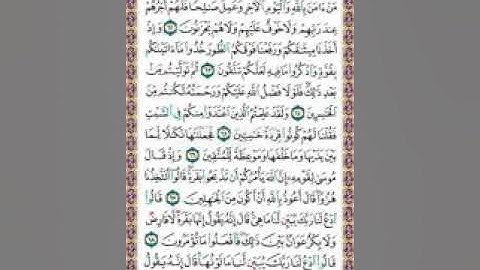 مَنْ ءَامَنَ بِٱللَّهِ وَٱلْيَوْمِ ٱلْءَاخِرِ وَعَمِلَ صَٰلِحًا فَلَهُمْ أَجْرُهُمْ
عِندَ رَبِّهِمْ وَلَا خَوْفٌ عَلَيْهِمْ وَلَا هُمْ يَحْزَنُونَ ٦٢ وَإِذْ
أَخَذْنَا مِيثَٰقَكُمْ وَرَفَعْنَا فَوْقَكُمُ ٱلطُّورَ خُذُوا۟ مَآ ءَاتَيْنَٰكُم
بِقُوَّةٍ وَٱذْكُرُوا۟ مَا فِيهِ لَعَلَّكُمْ تَتَّقُونَ ٦٣ ثُمَّ تَوَلَّيْتُم مِّنۢ
بَعْدِ ذَٰلِكَ فَلَوْلَا فَضْلُ ٱللَّهِ عَلَيْكُمْ وَرَحْمَتُهُۥ لَكُنتُم مِّنَ
ٱلْخَٰسِرِينَ ٦٤ وَلَقَدْ عَلِمْتُمُ ٱلَّذِينَ ٱعْتَدَوْا۟ مِنكُمْ فِى ٱلسَّبْتِ
فَقُلْنَا لَهُمْ كُونُوا۟ قِرَدَةً خَٰسِـِٔينَ ٦٥ فَجَعَلْنَٰهَا نَكَٰلًا لِّمَا
بَيْنَ يَدَيْهَا وَمَا خَلْفَهَا وَمَوْعِظَةً لِّلْمُتَّقِينَ ٦٦ وَإِذْ قَالَ
مُوسَىٰ لِقَوْمِهِۦٓ إِنَّ ٱللَّهَ يَأْمُرُكُمْ أَن تَذْبَحُوا۟ بَقَرَةً قَالُوٓا۟ أَتَتَّخِذُنَا
هُزُوًا قَالَ أَعُوذُ بِٱللَّهِ أَنْ أَكُونَ مِنَ ٱلْجَٰهِلِينَ ٦٧ قَالُوا۟
ٱدْعُ لَنَا رَبَّكَ يُبَيِّن لَّنَا مَا هِىَ قَالَ إِنَّهُۥ يَقُولُ إِنَّهَا بَقَرَةٌ لَّا فَارِضٌ
وَلَا بِكْرٌ عَوَانٌۢ بَيْنَ ذَٰلِكَ فَٱفْعَلُوا۟ مَا تُؤْمَرُونَ ٦٨
قَالُوا۟ ٱدْعُ لَنَا رَبَّكَ يُبَيِّن لَّنَا مَا لَوْنُهَا قَالَ إِنَّهُۥ يَقُولُ